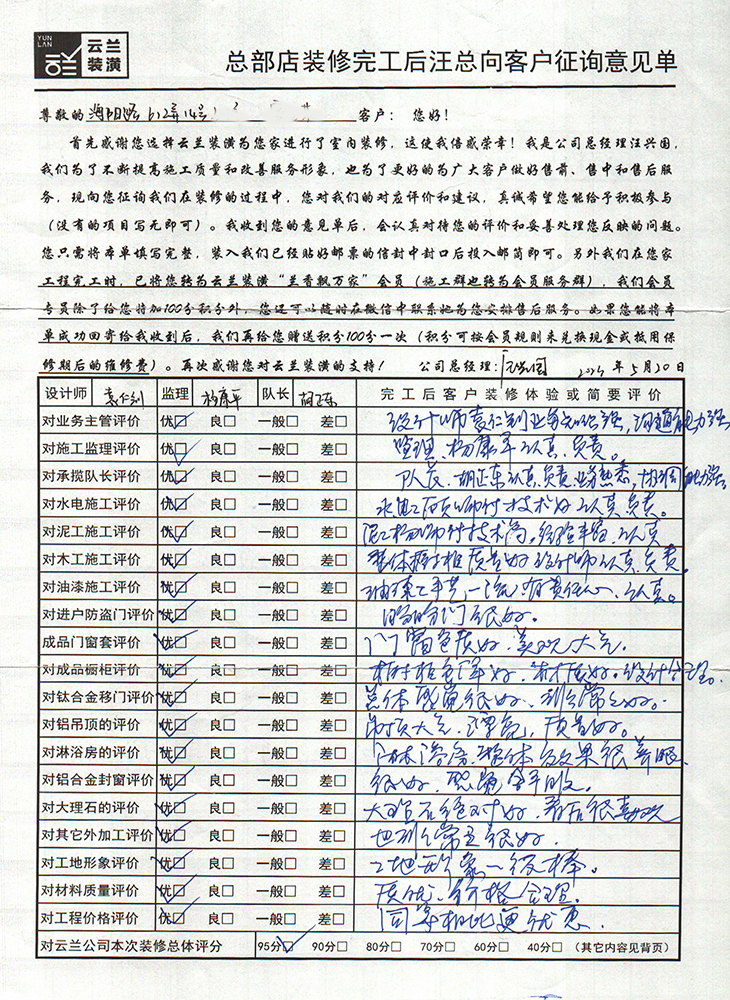 YUN LAN
云兰装潢
总部店装修完工后汪总向客户征询意见单
尊敬的 海阳路612弄14号 客户： 您好！
首先感谢您选择云兰装潢为您家进行了室内装修，这使我倍感荣幸！我是公司总经理汪兴国，
我们为了不断提高施工质量和改善服务形象，也为了更好的为广大客户做好售前、售中和售后服
务，现向您征询我们在装修的过程中，您对我们的对应评价和建议，真诚希望您能给予积极参与
（没有的项目写无即可）。我收到您的意见单后，会认真对待您的评价和妥善处理您反映的问题。
您只需将本单填写完整，装入我们已经贴好邮票的信封中封口后投入邮筒即可。另外我们在您家
工程完工时，已将您转为云兰装潢“兰香飘万家”会员（施工群也转为会员服务群），我们会员
专员除了给您增加100分积分外，您还可以随时在微信中联系她为您安排售后服务。如果您能将本
单成功回寄给我收到后，我们再给您赠送积分100分一次（积分可按会员规则来兑换现金或抵用保
修期后的维修费）。再次感谢您对云兰装潢的支持！ 公司总经理： 年5月20日
设计师 袁仁利 监理 杨康平 队长 胡正东 完工后客户装修体验或简要评价
对业务主管评价 优□ 良□ 一般□ 差□ 设计师袁仁利业务 强，沟通能力强
对施工监理评价 优□ 良□ 一般□ 差□ 监理、杨康平认真、负责。
对承揽队长评价 优□ 良□ 一般□ 差□ 队长、胡正东认真负责业务熟悉，协调能力强。
对水电施工评价 优□ 良□ 一般□ 差□ 水电工 师付技术好认真、负责。
对泥工施工评价 优□ 良□ 一般□ 差□ 泥工杨师付技术高，经验丰富、认真
对木工施工评价 优□ 良□ 一般□ 差□ 整体橱柜质量好设计师认真、负责。
对油漆施工评价 优□ 良□ 一般□ 差□ 油漆工手艺一流，有责任心、认真。
对进户防盗门评价 优□ 良□ 一般□ 差□ 防盗门很好。
成品门窗套评价 优□ 良□ 一般□ 差□ 门窗色质好，美观大气.
对成品橱柜评价 优□ 良□ 一般□ 差□ 橱柜色泽好， 材质好。设计合理。
对钛合金移门评价 优□ 良□ 一般□ 差□ 总体感觉很好、非常之好。
对铝吊顶的评价 优□ 良□ 一般□ 差□ 吊顶大气、漂亮，质量好。
对淋浴房的评价 优□ 良□ 一般□ 差□ 淋浴房、整体效果很养眼
对铝合金封窗评价 优□ 良□ 一般□ 差□ 很好、
对大理石的评价 优□ 良□ 一般□ 差□ 大理石绝对好，看后很喜欢
对其它外加工评价 优□ 良□ 一般□ 差□ 也非常之很好.
对工地形象评价 优□ 良□ 一般□ 差□ 工地形象一级棒。
对材料质量评价 优□ 良□ 一般□ 差□ 质优、价格合理.
对工程价格评价 优□ 良□ 一般□ 差□ 同等相比更优惠.
对云兰公司本次装修总体评分 95分□ 90分□ 80分□ 70分□ 60分□ 40分□ （其它内容见背页）